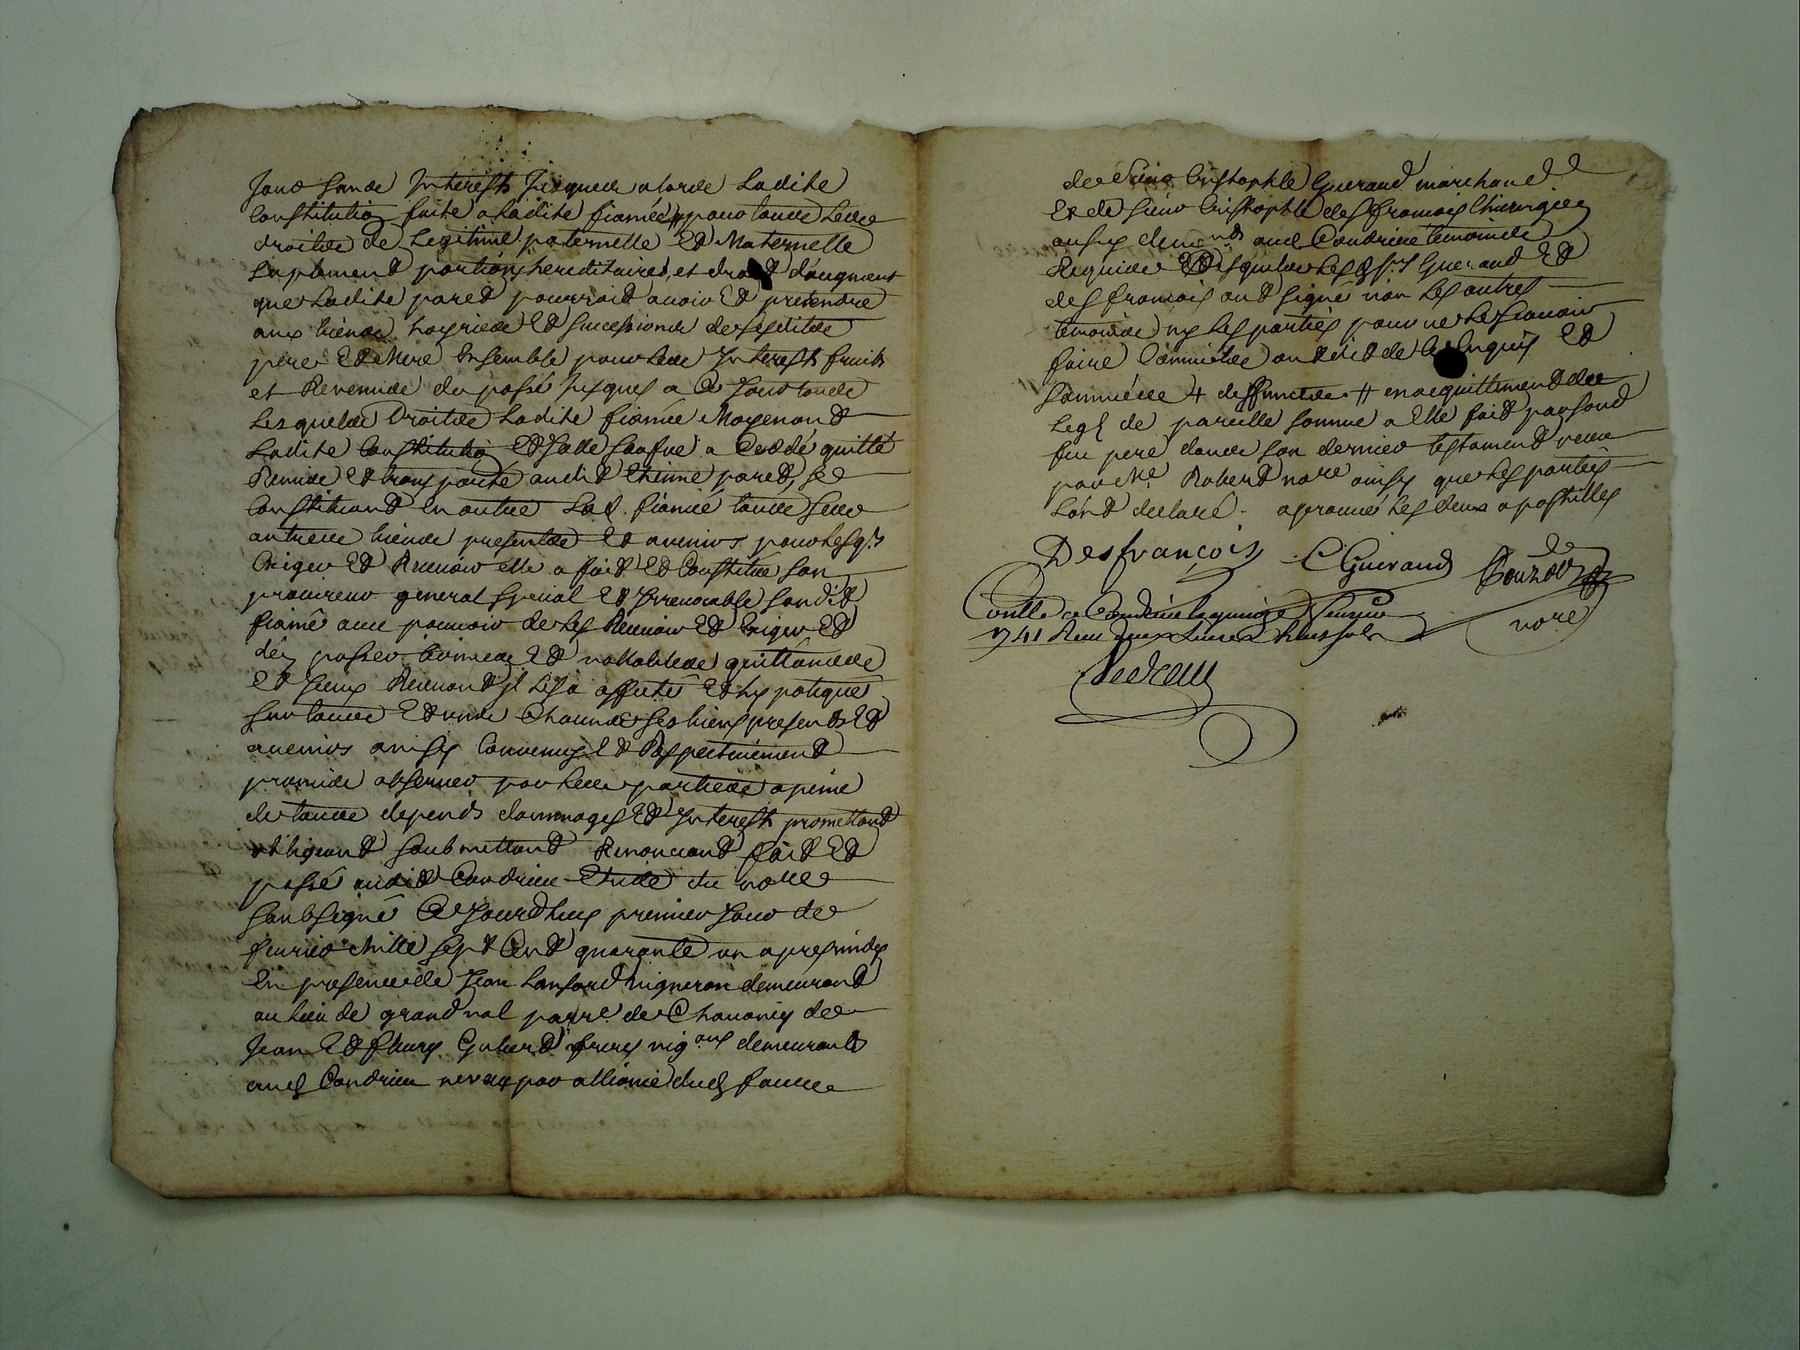 Jour sande Interests Jusques alorde Ladite
Constitution faite a Ladite fiancée pour toutes Lesd
droitde de Legitime paternelle Et Maternelle
suplement portions hereditaires, et droit d'augment
que Ladite paret pourroit avoir Et pretendre
aux biende hoyriede Et successionde desesditde
pere Et Mere Ensemble pour tous Interests fruits
et Revenude du passé Jusques a Ce Jour toude
Lesquelde Droitde Ladite fiancée Moyenant
Ladite Constitution Et a Cedé quitté
Remide Et transporté audit Etienne paret, se
Constituant En outre Lad. fiancée toude sede
autrede biende presentde Et avenirs pour lesqls
Exiger Et Recevoir elle a fait Et Constitué son
procureur general special Et Irrevocable sondit
fiancé avec pouvoir de les Recevoir Et Exiger Et
d'en passer bonnede Et vallablede quittancede
Et Ceux Recevant Jl Les a affecté Et hypotequé
sur toude Et un Chacunde ses biens presents Et
avenirs ainsy Convenus Et Respectivement
promide observer par Lede partiede a peine
de toude depends dommages Et Interests promettant
obligeant soubmettant Renonciant fait Et
passé audit Condrieu Etude du nore
soubsigné Ce Jourd'huy premier Jour de
fevrier Mille sept Cent quarante un apresmidy
En presence de Jean Lanford vigneron demeurant
au lieu de grand val parre de Chavaney de
Jean Et fleury Gubert freres vigons demeurants
aud Condrieu neveux par alliance dud fiancé
de sieur Cristophle Gueraud marchand
Et de sieur Cristophle desfrancois Chirurgien
aussy demts aud Condrieu temoinde
Requide Et desquelde Les srs Gueraud Et
desfrancois ont signé non Les autres
temoinde ny Les parties pour ne Le scavoir
faire Comme Ilde ont dit de Ce Enquis Et
sommééde ╪ deffunctde ╫ en acquittement du
Legs de pareille somme a Elle fait par sond
feu pere dande son dernier testament receu
par Me Robert nore ainsy que Les parties
L'ont declaré. aprouvés Les deux apostilles
Desfrançois C Gueraud
nore
Contllé a Condrieu le quinze fevrier
1741 Receu